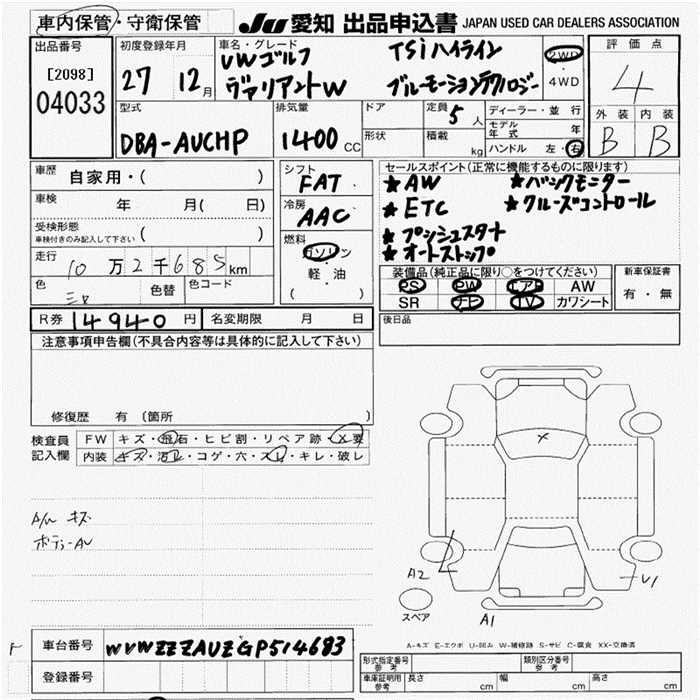 車内保管・守衛保管
JU 愛知 出品申込書 JAPAN USED CAR DEALERS ASSOCIATION
出品番号
[2098]
04033
初度登録年月
27 12月
車名・グレード
VWゴルフ TSiハイライン
ヴァリアントW ブルーモーションテクノロジー
2WD
・
4WD
評価点
4
外装 内装
B B
型式
DBA-AUCHP
排気量
1400 CC
ドア
形状
定員 5 人
積載 kg
ディーラー・並行
モデル年式 年
ハンドル 左・右
車歴 自家用・( )
車検 年 月( 日)
受検形態
車検付きのみ記入して下さい ( )
走行 10万2千685km
色 色替 色コード
シフト
FAT
冷房
AAC
燃料
ガソリン
軽・油
( )
セールスポイント(正常に機能するものに限ります)
★AW ★バックモニター
★ETC ★クルーズコントロール
★プッシュスタート
★オートストップ
装備品(純正品に限り○をつけてください)
PS PW エアB AW
SR ナビ TV カワシート
新車保証書
有・無
R券 14940円 名変期限 月 日
後日品
注意事項申告欄(不具合内容等は具体的に記入して下さい)
修復歴 有 〔箇所 〕
検査員
記入欄
FW キズ・飛石・ヒビ割・リペア跡・X要
内装 キズ・汚レ・コゲ・穴・スレ・キレ・破レ
A/W キズ
×
A2
V1
スペア
A1
A-キズ E-エクボ U-凹み W-補修跡 S-サビ C-腐食 XX-交換済
車台番号 WVWZZZAUZGP514683
登録番号
形式指定番号
参考
類別区分番号
参考
車庫証明用
参考
長さ cm 幅 cm 高さ cm